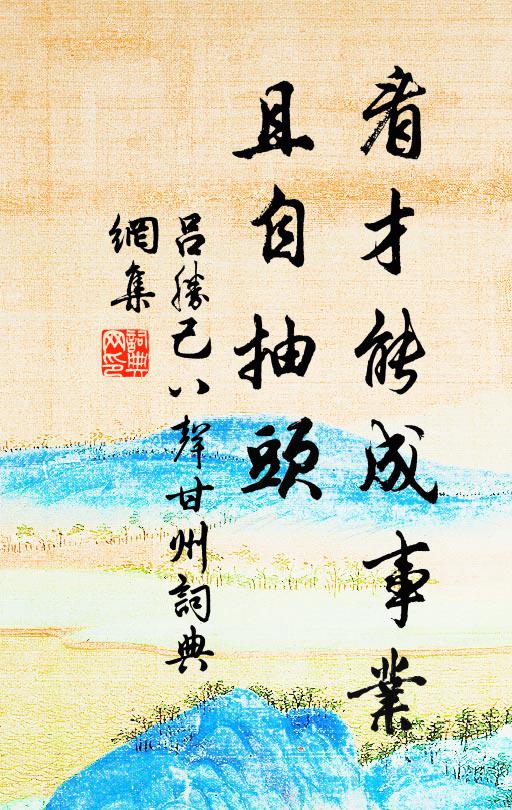 看才能成事業
且自抽頭
呂勝己八聲甘州詞典
網集
詞典網印